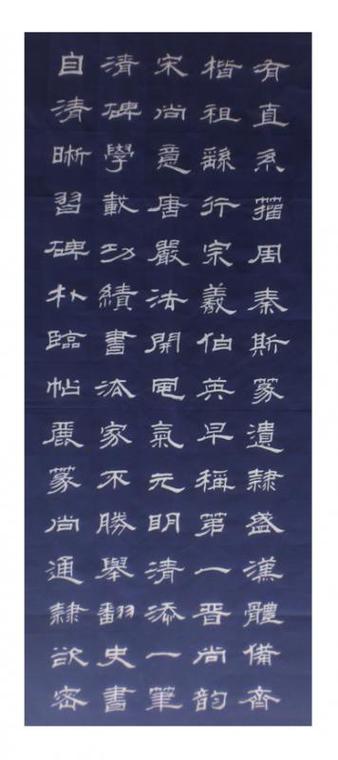 有直系籀周秦斯篆遺隸盛漢體備齊
楷祖繇行宗羲伯英早稱第一晉尚韵
宋尚意唐嚴法開風氣元明清添一筆
清碑學載功績書派家不勝舉翻史書
自清晰習碑朴臨帖麗篆尚通隸欲密